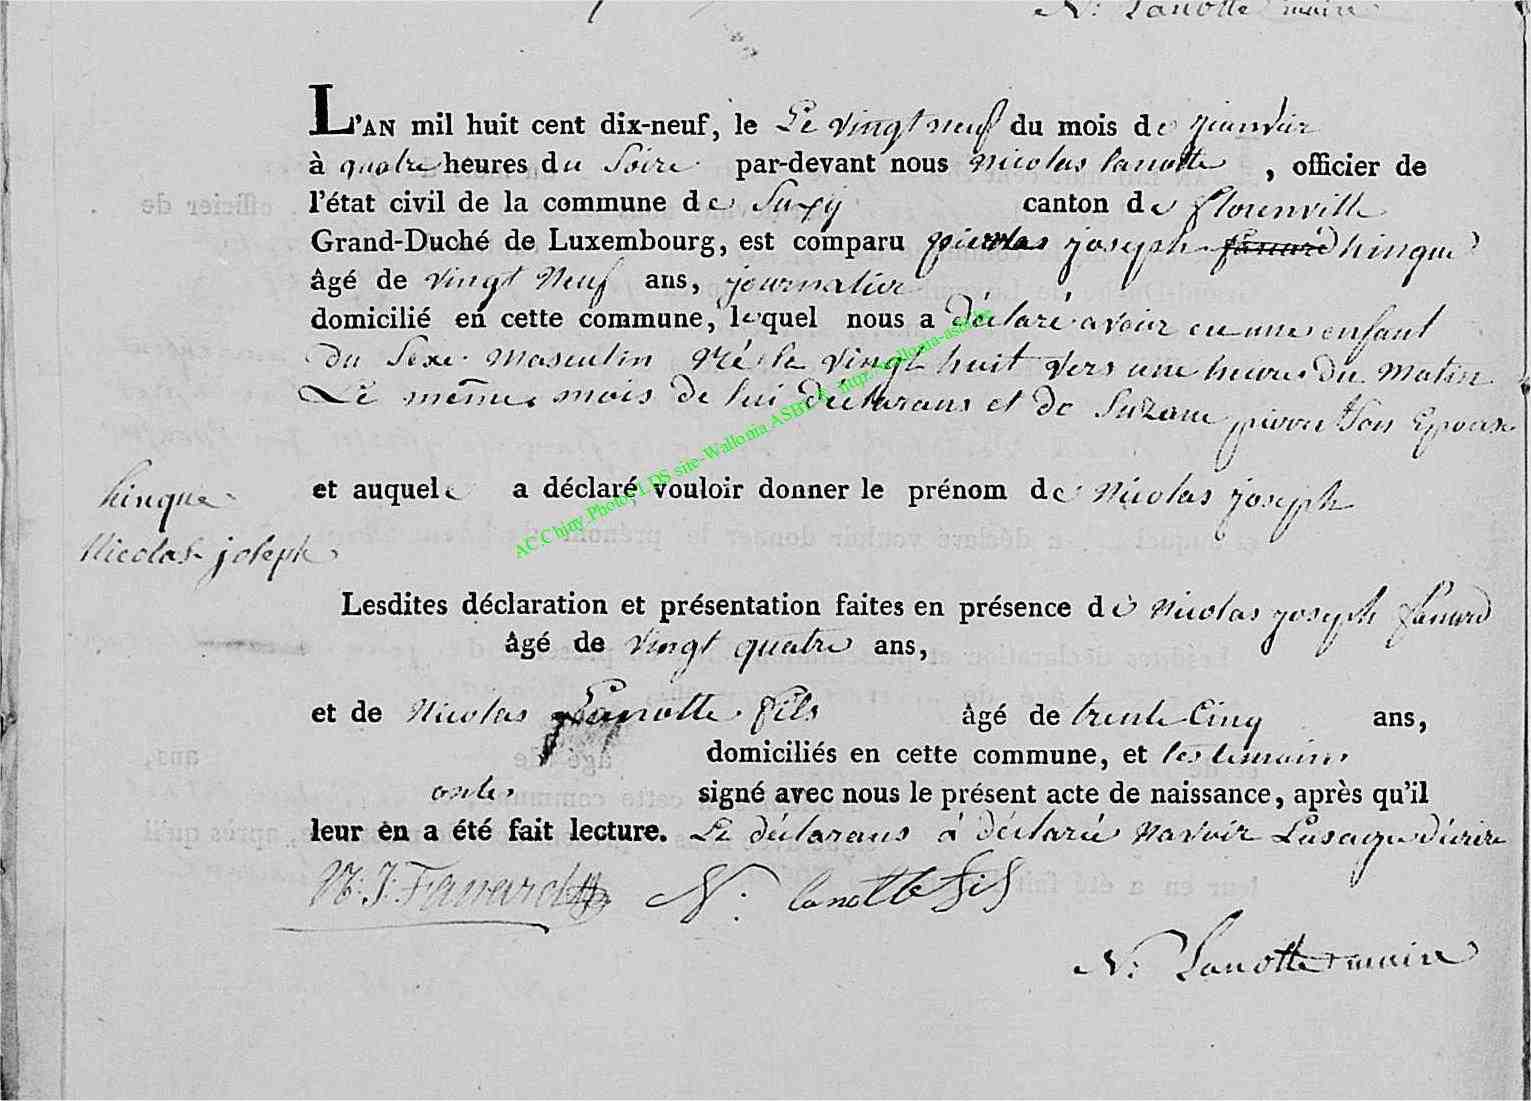 N: Lanotte maire
L'AN mil huit cent dix-neuf, le Le vingt neuf du mois de jeanvier
à quatre heures du Soire par-devant nous nicolas lanotte , officier de
l'état civil de la commune de Suxÿ canton de florenville
Grand-Duché de Luxembourg, est comparu joseph hinque
âgé de vingt Neuf ans, journalier
domicilié en cette commune, lequel nous a déclaré avoir eu une enfant
du Sexe masculin Né le vingt huit vers une heure du matin
Le même mois de lui déclarans et de Suzane pierre Son Epouse
hinque
Nicolas joseph
et auquel a déclaré vouloir donner le prénom de Nicolas joseph
Lesdites déclaration et présentation faites en présence de Nicolas joseph fanard
âgé de vingt quatre ans,
et de Nicolas Lanotte fils âgé de trente Cinq ans,
domiciliés en cette commune, et les temoins
onter signé avec nous le présent acte de naissance, après qu'il
leur en a été fait lecture. Le déclarans à déclaré Navoir Lusage décrire
N: J: Fanard N: lanotte fils
N: Lanotte maire
AC.Chiny Photo LDS site-Wallonia ASBL